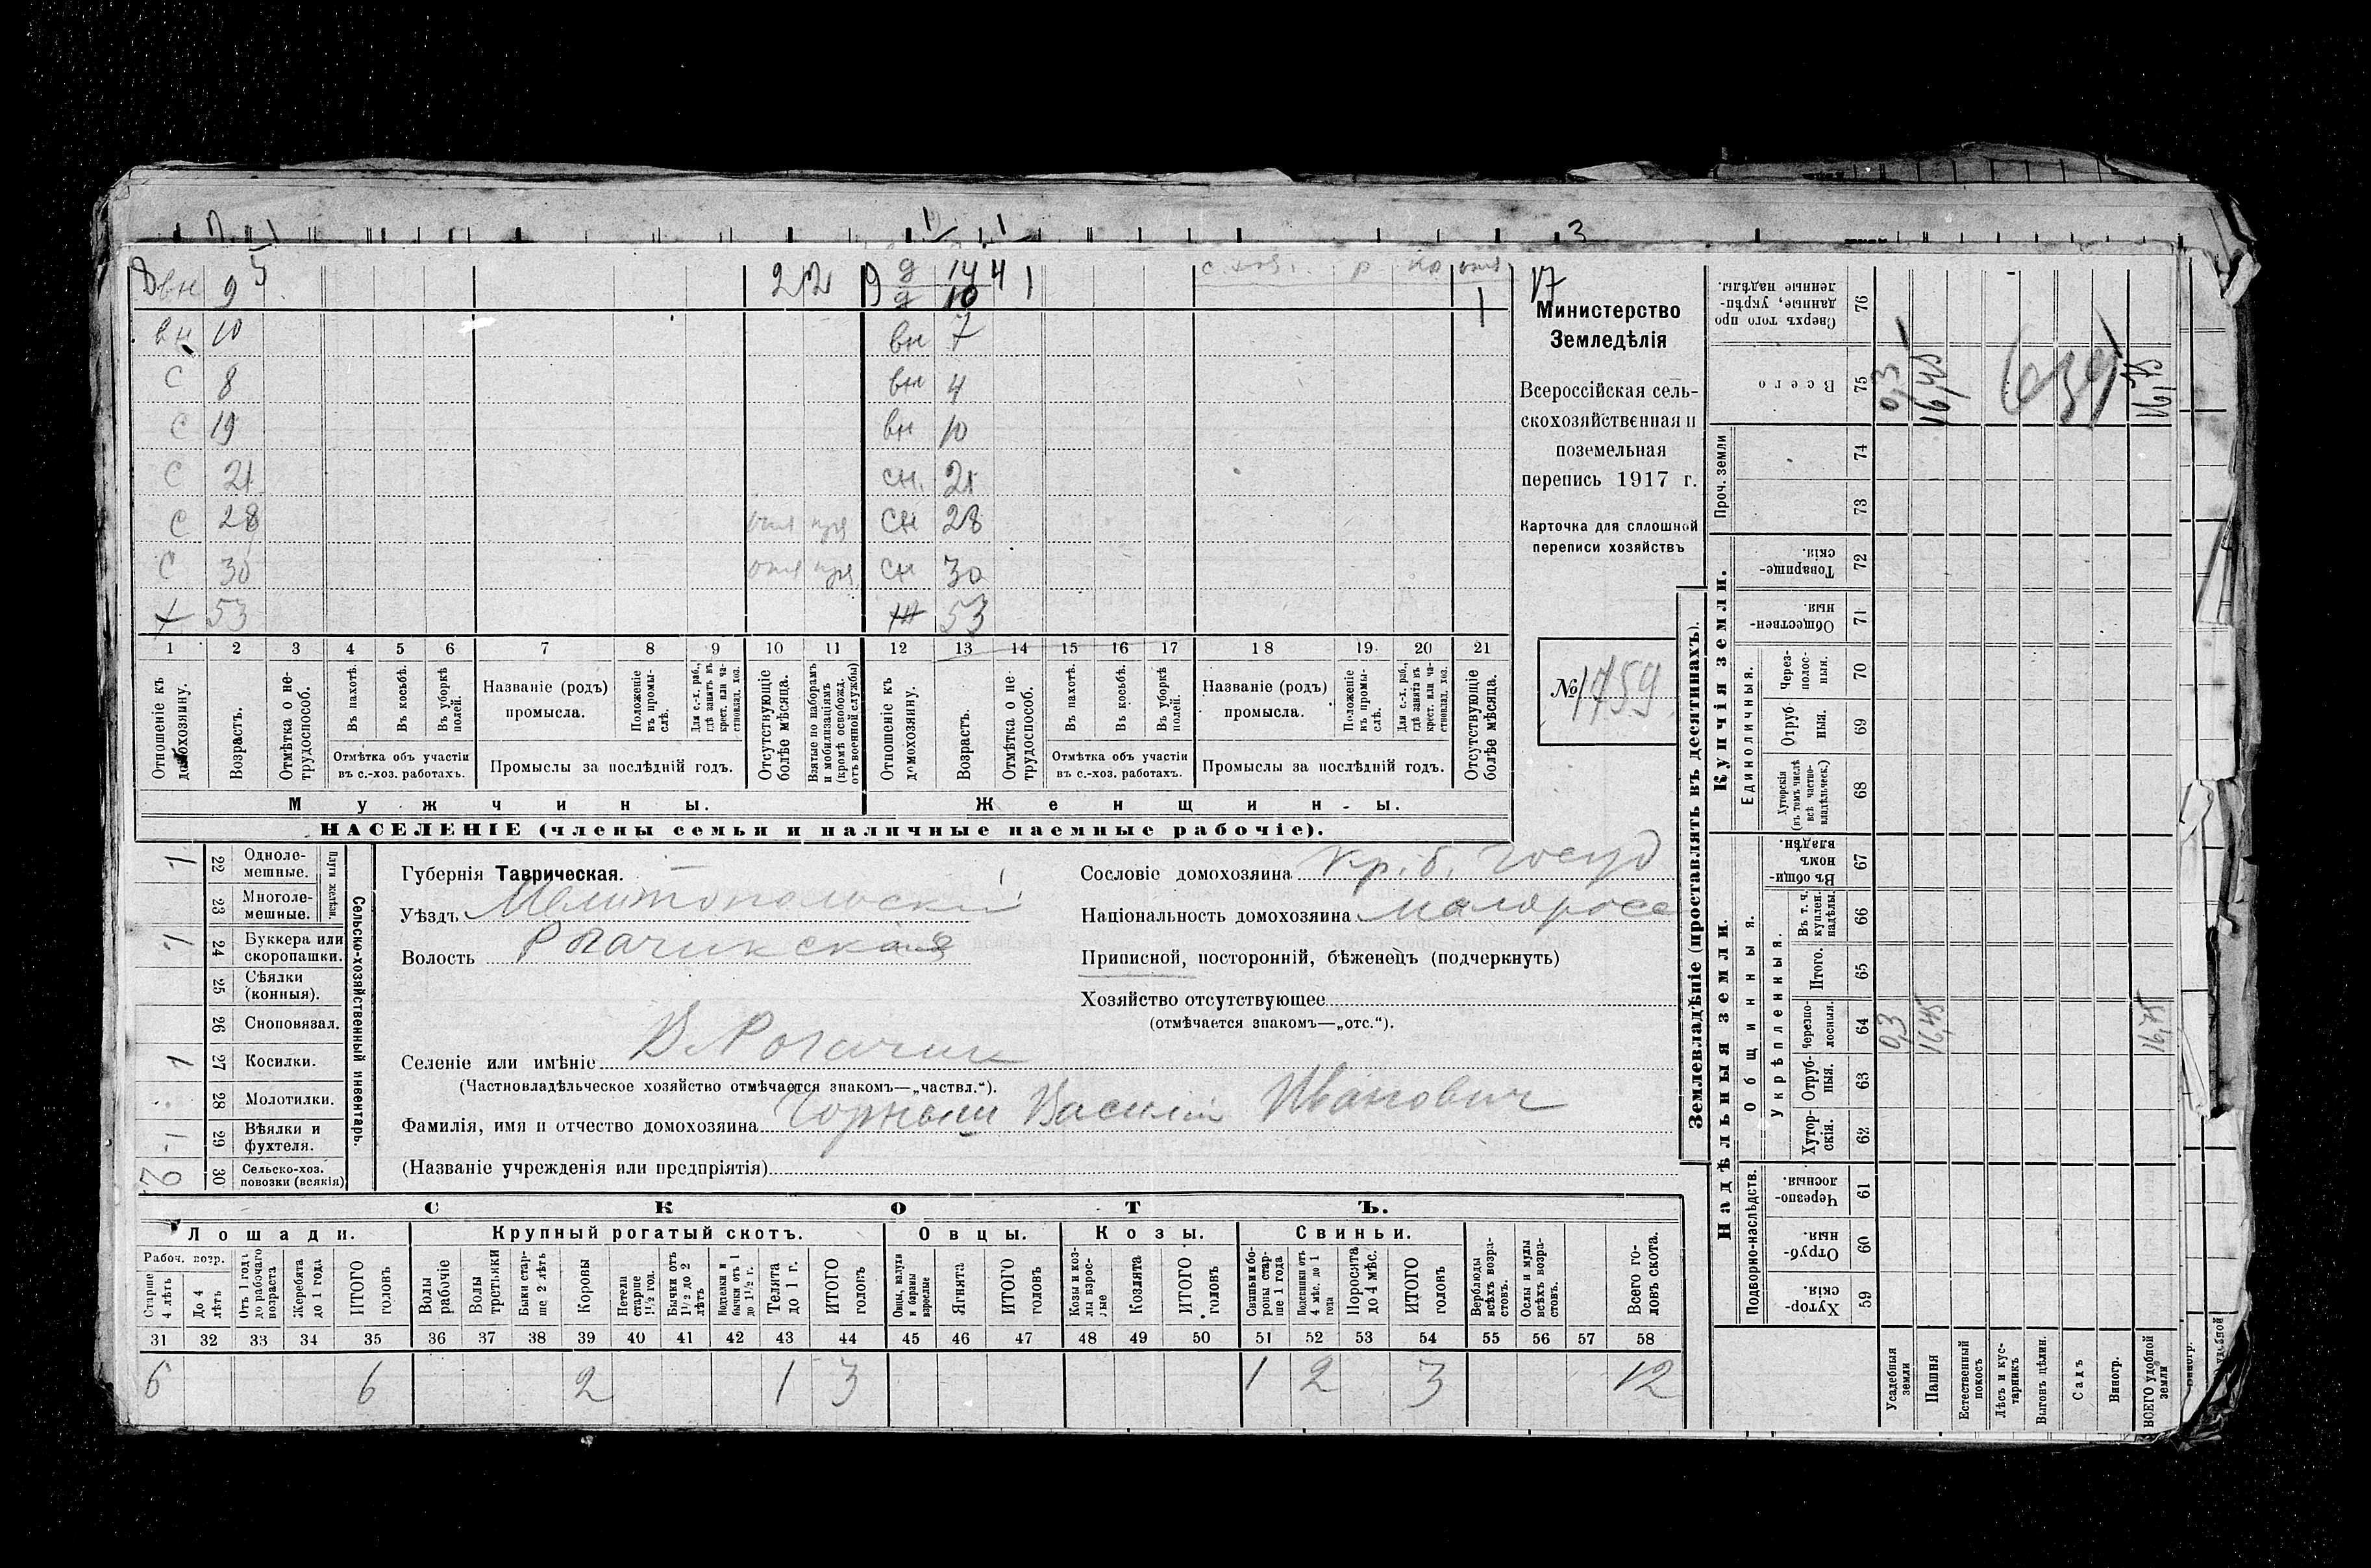 вн 9 5 2 2 9 д 14 4 1 17
д 10 1
вн 10 вн 7
с 8 вн 4
с 19 вн 10
с 21 сн. 21
с 28 сн 28
с 30 сн 30
х 53 53
1 2 3 4 5 6 7 8 9 10 11 12 13 14 15 16 17 18 19 20 21
Отношеніе къ домохозяину.
Возрастъ.
Отмѣтка о нетрудоспособ.
Въ пахотѣ.
Въ косьбѣ.
Въ уборкѣ полей.
Отмѣтка объ участіи въ с.-хоз. работахъ.
Названіе (родъ) промысла.
Положеніе въ промыслѣ.
Для с.-х. раб., гдѣ занятъ въ крест. или частновлад. хоз.
Промыслы за послѣдній годъ.
Отсутствующіе болѣе мѣсяца.
Взятые по наборамъ и мобилизаціямъ (кромѣ освобожд. отъ военной службы)
Отношеніе къ домохозяину.
Возрастъ.
Отмѣтка о нетрудоспособ.
Въ пахотѣ.
Въ косьбѣ.
Въ уборкѣ полей.
Отмѣтка объ участіи въ с.-хоз. работахъ.
Названіе (родъ) промысла.
Положеніе въ промыслѣ.
Для с.-х. раб., гдѣ занята въ крест. или частновлад. хоз.
Промыслы за послѣдній годъ.
Отсутствующіе болѣе мѣсяца.
Мужчины. Женщины.
НАСЕЛЕНІЕ (члены семьи и наличные наемные рабочіе).
Министерство
Земледѣлія
Всероссійская сель-
скохозяйственная и
поземельная
перепись 1917 г.
Карточка для сплошной
переписи хозяйствъ
№ 1759
1 22 Одноле-мешные.
23 Многоле-мешные.
Плуги желѣзн.
1 24 Буккера или скоропашки.
25 Сѣялки (конныя).
26 Сноповязал.
1 27 Косилки.
28 Молотилки.
1 29 Вѣялки и фухтеля.
2 30 Сельско-хоз. повозки (всякія)
Сельско-хозяйственный инвентарь.
Губернія Таврическая.
Уѣздъ Мелитопольскій
Волость Рогачикская
Селеніе или имѣніе В. Рогачик
(Частновладѣльческое хозяйство отмѣчается знакомъ—„частвл.“).
Фамилія, имя и отчество домохозяина Чорныш Василій Иванович
(Названіе учрежденія или предпріятія)
Сословіе домохозяина кр. б. госуд
Національность домохозяина малоросс
Приписной, посторонній, бѣженецъ (подчеркнуть)
Хозяйство отсутствующее
(отмѣчается знакомъ—„отс.“).
СКОТЪ.
Лошади. Крупный рогатый скотъ. Овцы. Козы. Свиньи.
Рабоч. возр.
Старше 4 лѣтъ
До 4 лѣтъ
Отъ 1 года до рабочаго возраста
Жеребята до 1 года
ИТОГО головъ
Волы рабочіе
Волы третьяки
Быки старше 2 лѣтъ
Коровы
Нетели старше 1½ год.
Бычки отъ 1½ до 2 лѣтъ
Подтелки и бычки отъ 1 до 1½ г.
Телята до 1 г.
ИТОГО головъ
Овцы, валухи и бараны взрослые
Ягнята
ИТОГО головъ
Козы и козлы взрослые
Козлята
ИТОГО головъ
Свиньи боровы старше 1 года
Подсвинки отъ 4 мѣс. до 1 года
Поросята до 4 мѣс.
ИТОГО головъ
Верблюды всѣхъ возрастовъ.
Ослы и мулы всѣхъ возрастовъ.
Всего головъ скота.
31 32 33 34 35 36 37 38 39 40 41 42 43 44 45 46 47 48 49 50 51 52 53 54 55 56 57 58
6 6 2 1 3 1 2 3 12
Землевладѣніе (проставлять въ десятинахъ).
Надѣльныя земли. Купчія земли.
Подворно-наслѣдств. Общинныя. Единоличныя. Проч. земли
Укрѣпленныя.
59 Хуторскія.
60 Отрубныя.
61 Черезполосныя.
62 Хуторскія.
63 Отрубныя.
64 Черезполосныя.
65 Итого.
66 Въ т. ч. куплен. надѣлы.
67 Въ общинномъ владѣн.
68 Хуторскія (въ томъ числѣ всѣ частновладѣльческ.)
69 Отрубныя.
70 Черезполосныя.
71 Общественныя.
72 Товарищескія.
73
74
75 Всего
76 Сверхъ того проданные, укрѣпленные надѣлы.
Усадебныя земли 0,3 0,3
Пашня 16,45 16,45
Естественный покосъ
Лѣсъ и кустарникъ
Выгонъ цѣлин.
Садъ
Виногр.
ВСЕГО удобной земли 16,75 16,75
639